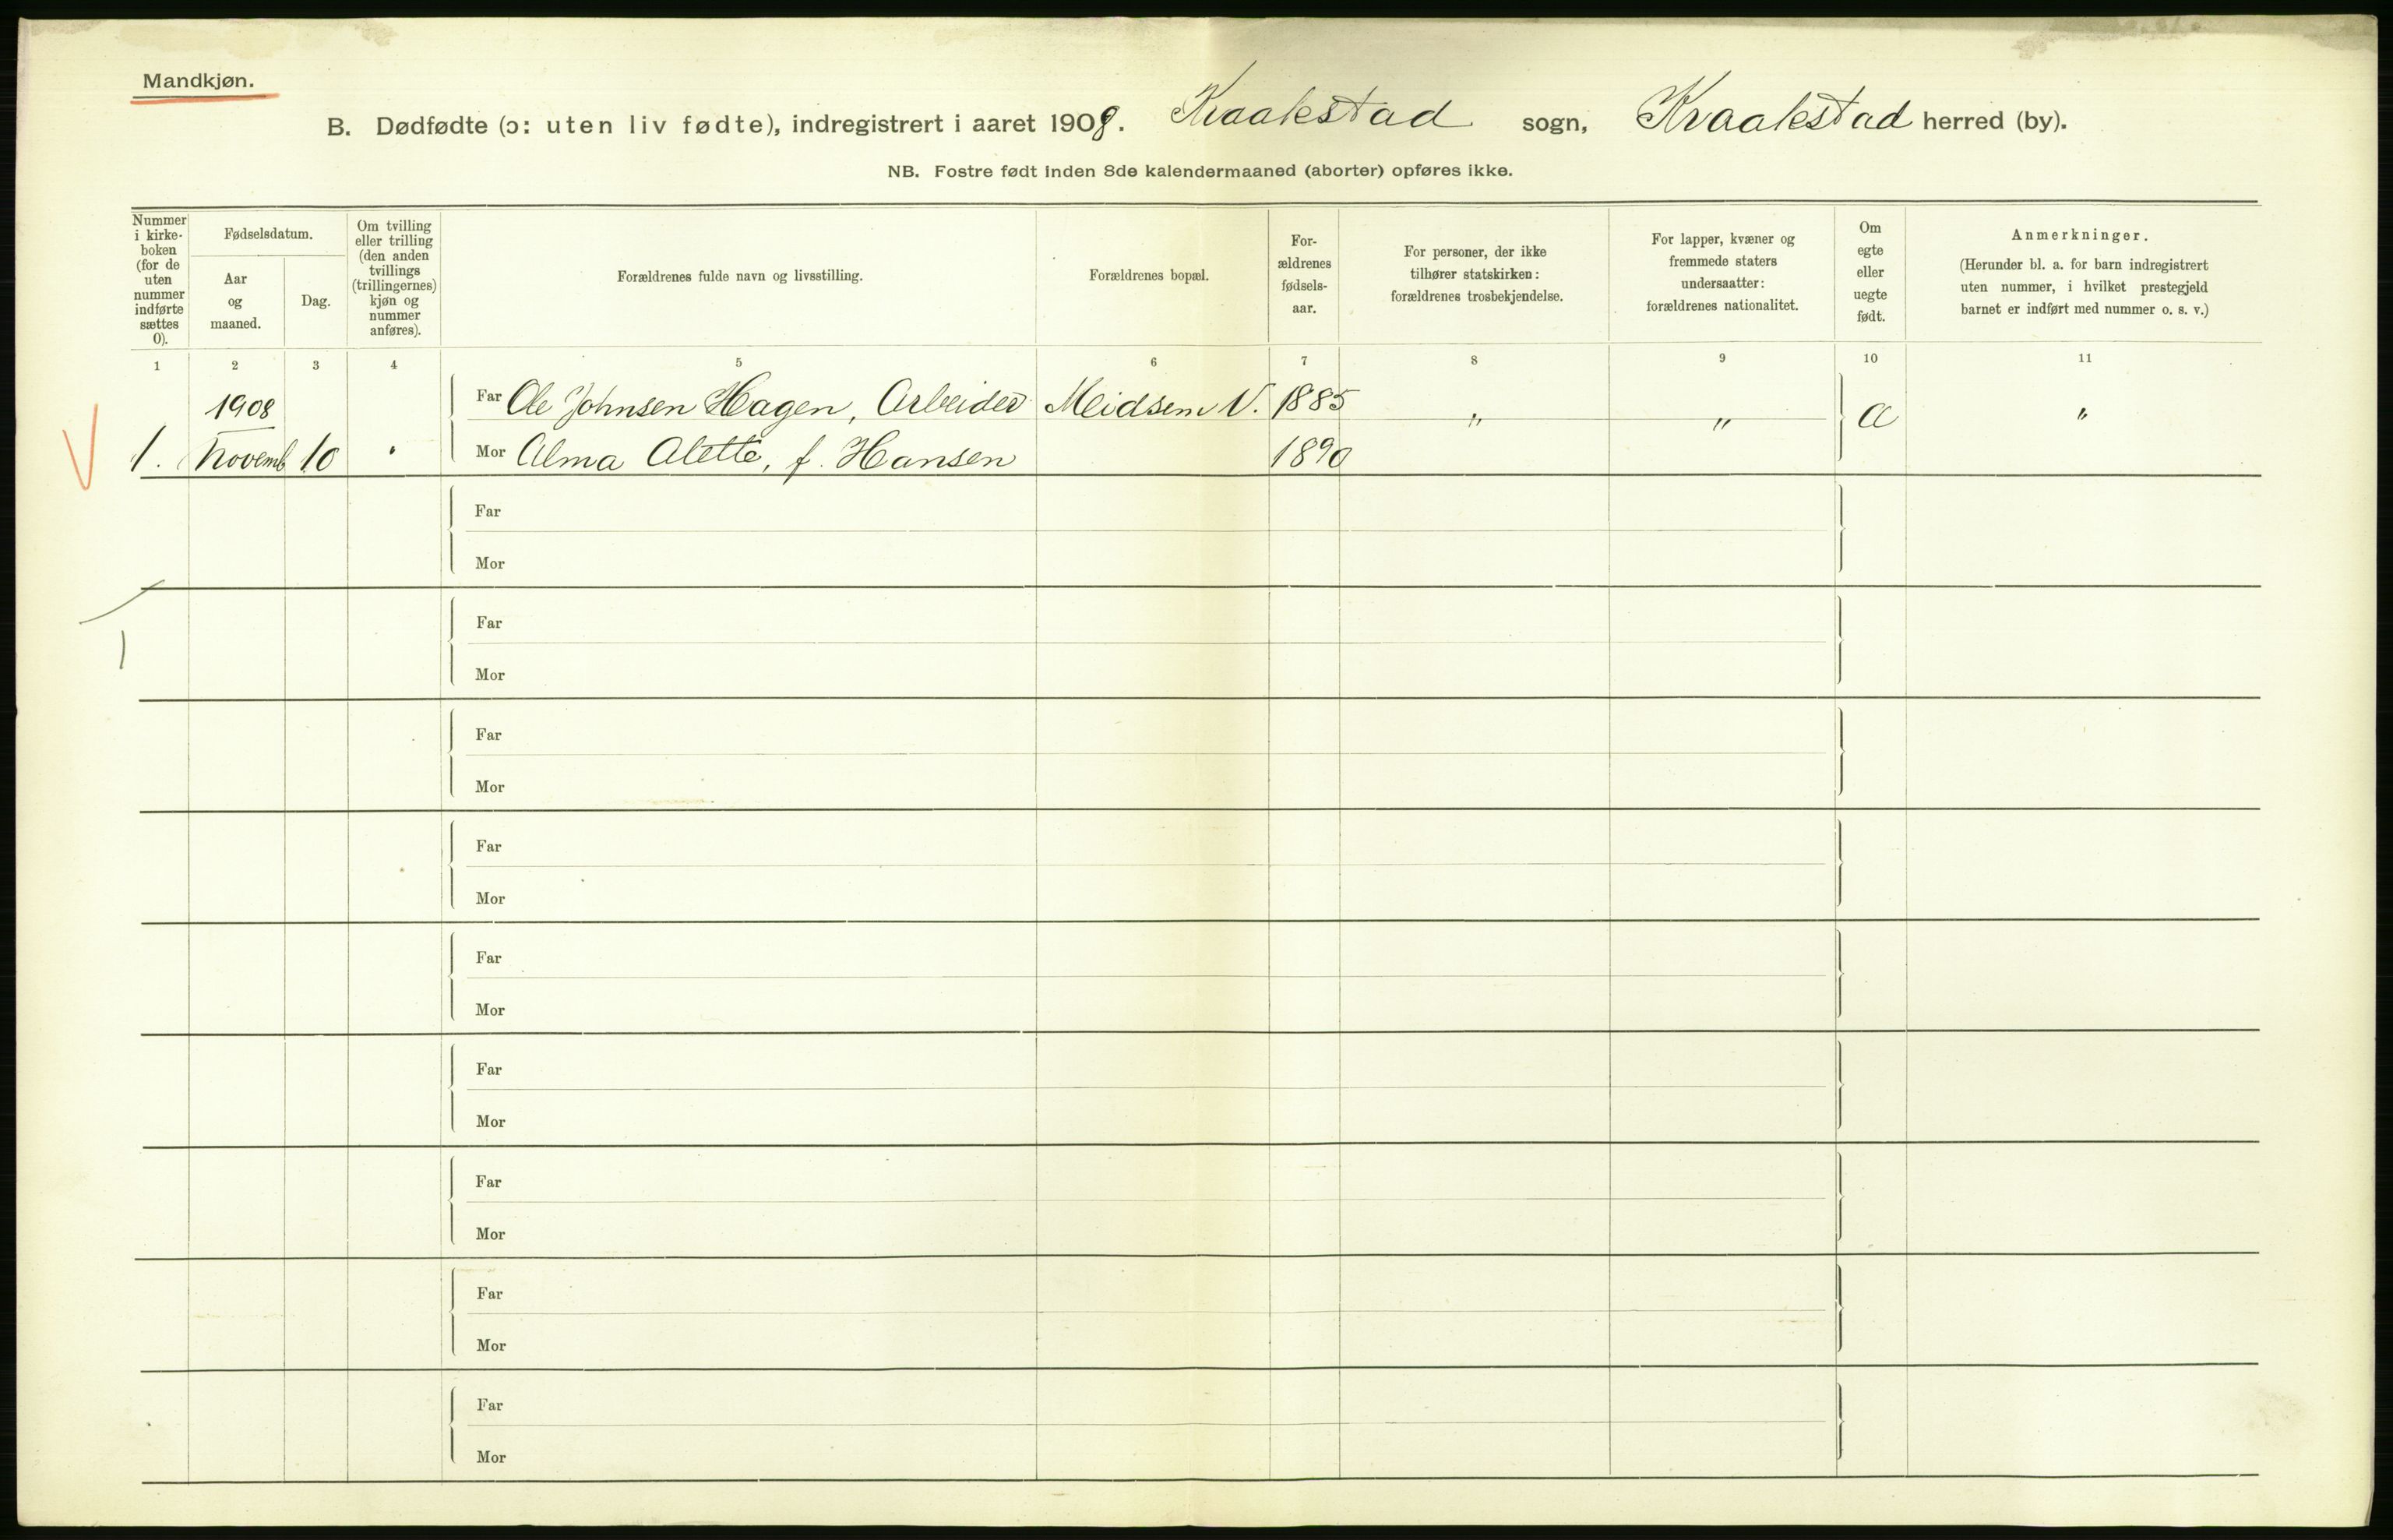 Mandkjøn.
B. Dødfødte (ɔ: uten liv fødte), indregistrert i aaret 1908. Kraakstad sogn, Kraakstad herred (by).
NB. Fostre født inden 8de kalendermaaned (aborter) opføres ikke.
Nummer i kirke-boken (for de uten nummer indførte sættes 0).
Fødselsdatum.
Aar og maaned.
Dag.
Om tvilling eller trilling (den anden tvillings (trillingernes) kjøn og nummer anføres).
Forældrenes fulde navn og livsstilling.
Forældrenes bopæl.
For-ældrenes fødsels-aar.
For personer, der ikke tilhører statskirken: forældrenes trosbekjendelse.
For lapper, kvæner og fremmede staters undersaatter: forældrenes nationalitet.
Om egte eller uegte født.
Anmerkninger.
(Herunder bl. a. for barn indregistrert uten nummer, i hvilket prestegjeld barnet er indført med nummer o. s. v.)
1 2 3 4 5 6 7 8 9 10 11
1908 Far Ole Johnsen Hagen, Arbeider Meidsem V. 1885 " " a "
1. Novemb 10 " Mor Alma Alette, f. Hansen 1890
Far
Mor
1
Far
Mor
Far
Mor
Far
Mor
Far
Mor
Far
Mor
Far
Mor
Far
Mor
Far
Mor